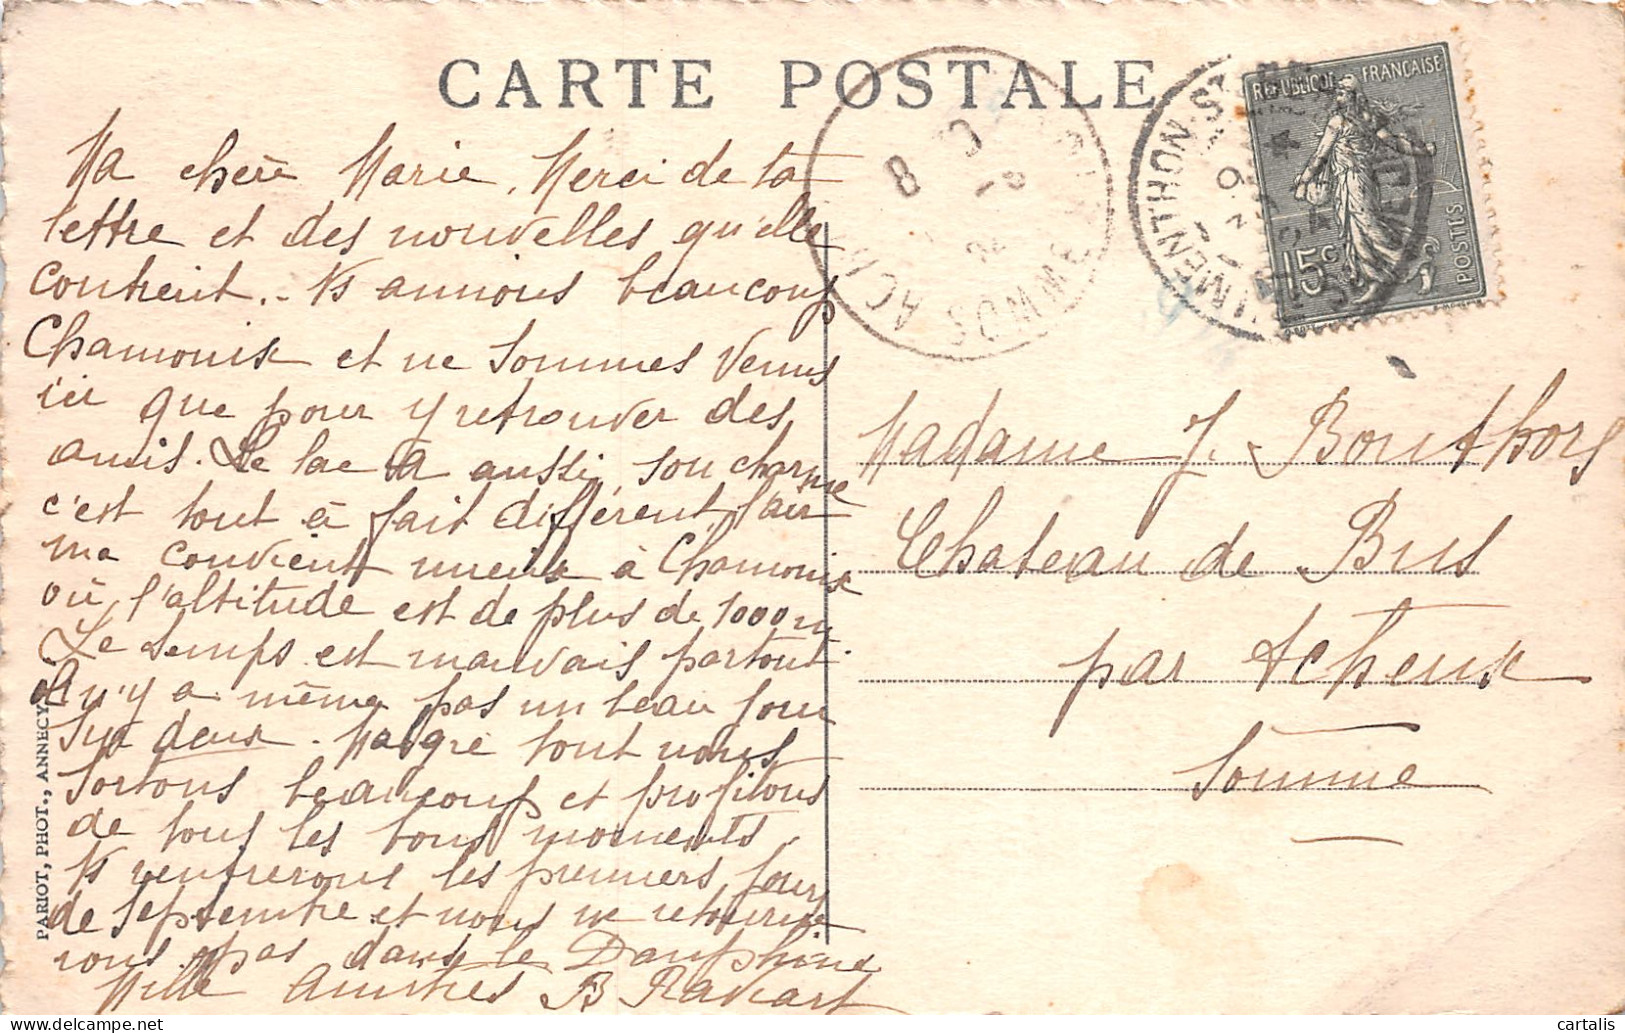 CARTE POSTALE
Ma chère Marie, Merci de ta
lettre et des nouvelles qu'elle
contient. - Ns aimions beaucoup
Chamonix et ne sommes venus
ici que pour y retrouver des
amis. Le lac a aussi son charme
c'est tout à fait différent, l'air
me convient mieux à Chamonix
où l'altitude est de plus de 1000 m.
Le temps est mauvais partout
n'y a même pas un beau jour
sur deux. Malgré tout nous
sortons beaucoup et profitons
de tous les bons moments.
Ns rentrerons les premiers jours
de Septembre et nous ne retourne
rons pas dans le Dauphiné
Mille Amitiés B Ravart
PARIOT, PHOT., ANNECY
REPUBLIQUE FRANÇAISE
15c
POSTES
MENTHON-ST
8
SOMME
Madame J. Bouthors
Château de Bus
par Acheux
Somme
cartalis
delcampe.net